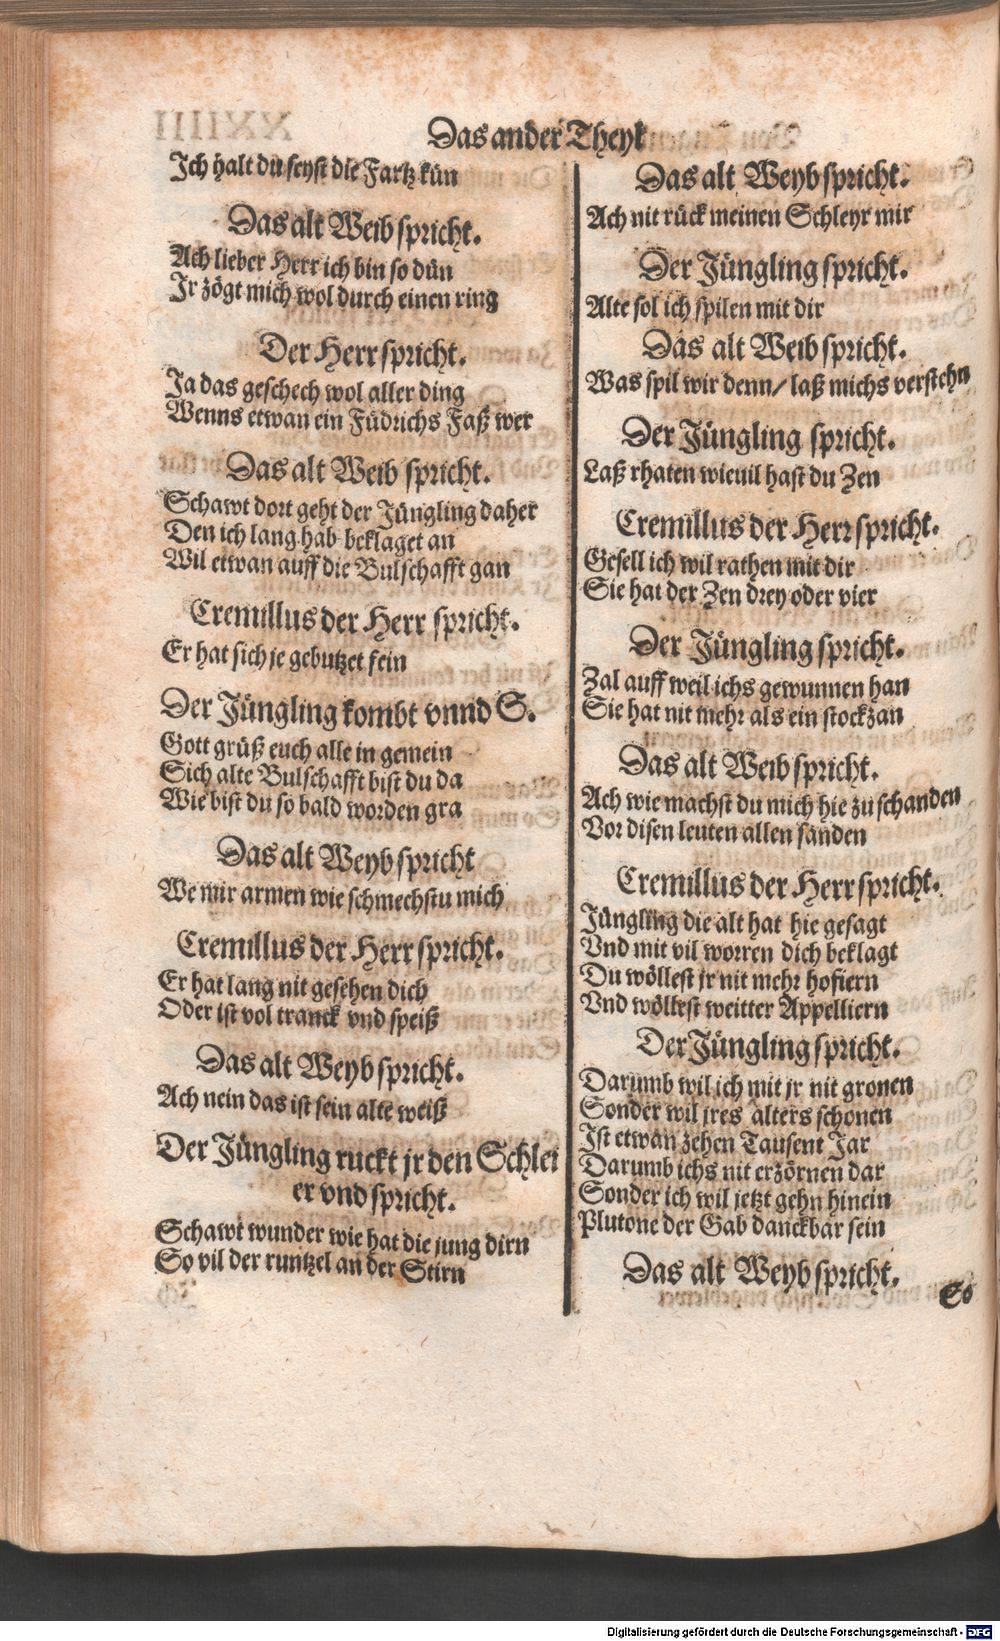 Das ander Theyl
Ich halt du seyst die Fartz kün
Das alt Weib spricht.
Ach lieber Herr ich bin so dün
Jr zögt mich wol durch einen ring
Der Herr spricht.
Ja das geschech wol aller ding
Wenns etwan ein Füdrichs Faß wer
Das alt Weib spricht.
Schawt dort geht der Jüngling daher
Den ich lang hab beklaget an
Wil etwan auff die Bulschafft gan
Cremillus der Herr spricht.
Er hat sich je gebutzet fein
Der Jüngling kombt vnnd S.
Gott grüß euch alle in gemein
Sich alte Bulschafft bist du da
Wie bist du so bald worden gra
Das alt Weyb spricht
We mir armen wie schmechstu mich
Cremillus der Herr spricht.
Er hat lang nit gesehen dich
Oder ist vol tranck vnd speiß
Das alt Weyb spricht.
Ach nein das ist sein alte weiß
Der Jüngling ruckt jr den Schlei
er vnd spricht.
Schawt wunder wie hat die jung dirn
So vil der runtzel an der Stirn
Das alt Weyb spricht.
Ach nit rück meinen Schleyr mir
Der Jüngling spricht.
Alte sol ich spilen mit dir
Das alt Weib spricht.
Was spil wir denn/ laß michs verstehn
Der Jüngling spricht.
Laß rhaten wieuil hast du Zen
Cremillus der Herr spricht.
Gesell ich wil rathen mit dir
Sie hat der Zen drey oder vier
Der Jüngling spricht.
Zal auff weil ichs gewunnen han
Sie hat nit mehr als ein stockzan
Das alt Weib spricht.
Ach wie machst du mich hie zu schanden
Vor disen leuten allen sanden
Cremillus der Herr spricht.
Jüngling die alt hat hie gesagt
Vnd mit vil worren dich beklagt
Du wöllest jr nit mehr hofiern
Vnd wöllest weitter Appelliern
Der Jüngling spricht.
Darumb wil ich mit jr nit gronen
Sonder wil jres alters schonen
Ist etwan zehen Tausent Jar
Darumb ichs nit erzörnen dar
Sonder ich wil jetzt gehn hinein
Plutone der Gab danckbar sein
Das alt Weyb spricht.
So
Digitalisierung gefördert durch die Deutsche Forschungsgemeinschaft - DFG